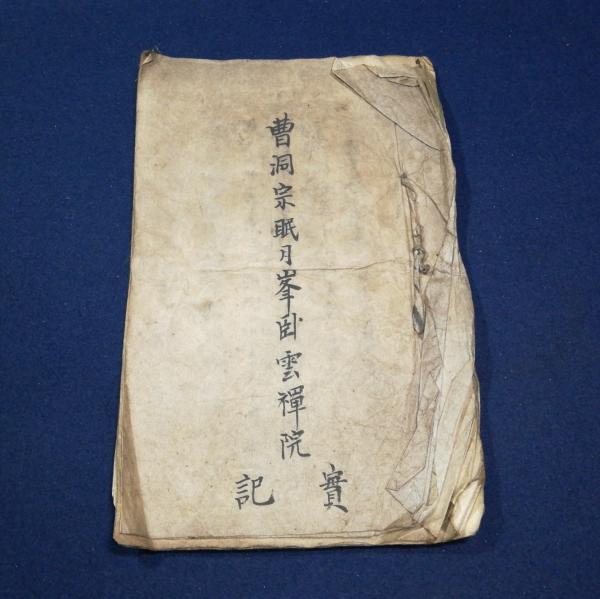 曹洞宗眠月峯卧雲禪院
實記